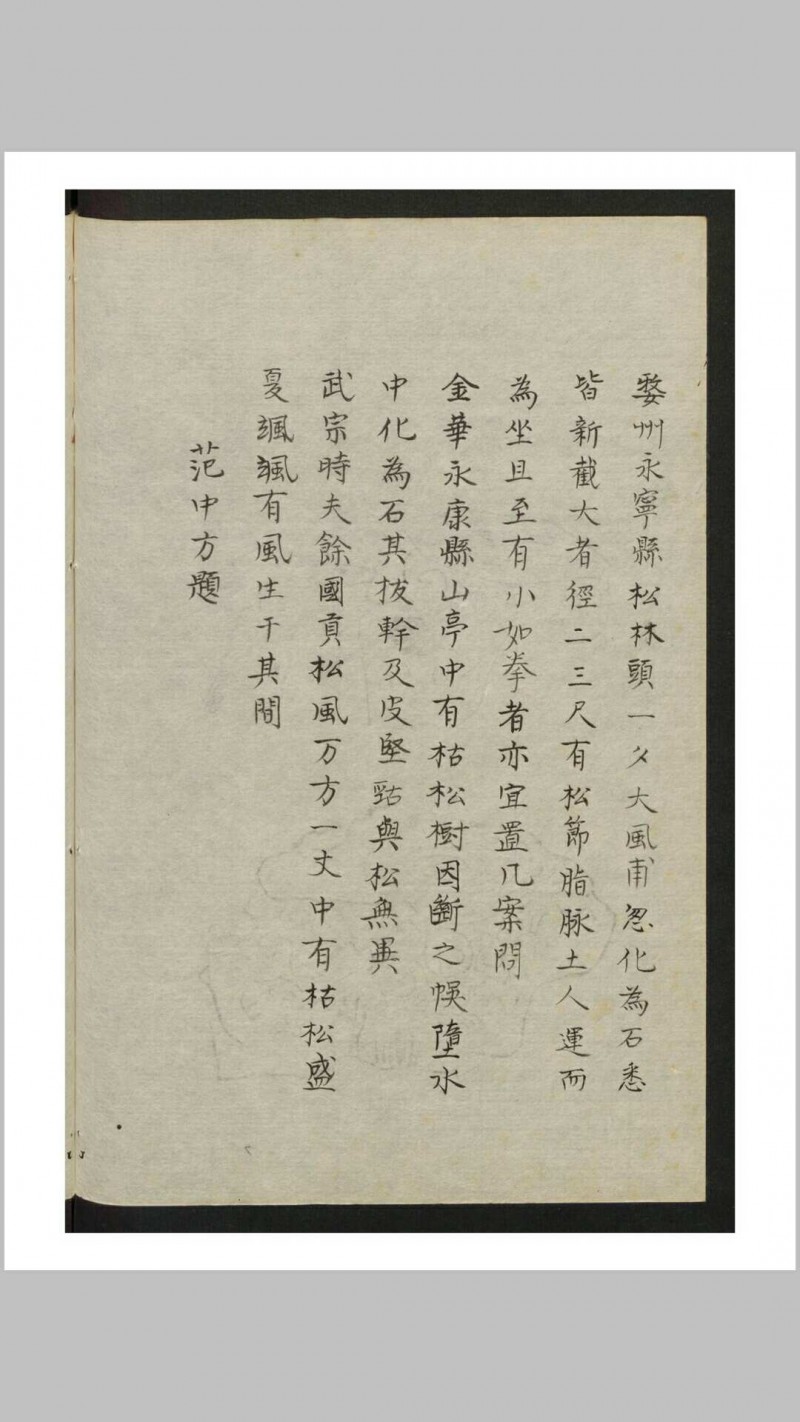 婺州永寧縣松林頭一夕大風雨忽化為石悉
皆新截大者徑二三尺有松節脂脉土人運而
為坐且至有小如拳者亦宜置几案間
金華永康縣山亭中有枯松樹因斷之悞墮水
中化為石其拔幹及皮堅勁與松無異
武宗時夫餘國貢松風万方一丈中有枯松盛
夏颯颯有風生于其間
范中方題